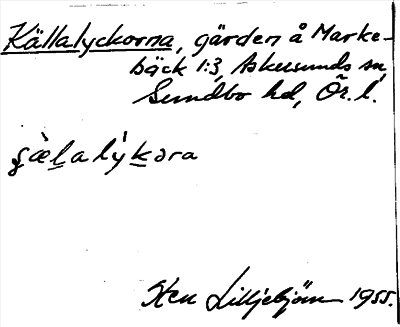 Källalyckorna, gärden å Marke-
bäck 1:3, Askersunds sn,
Sundbo hd, Ör. l.
Sten Lilljebjörn 1955.